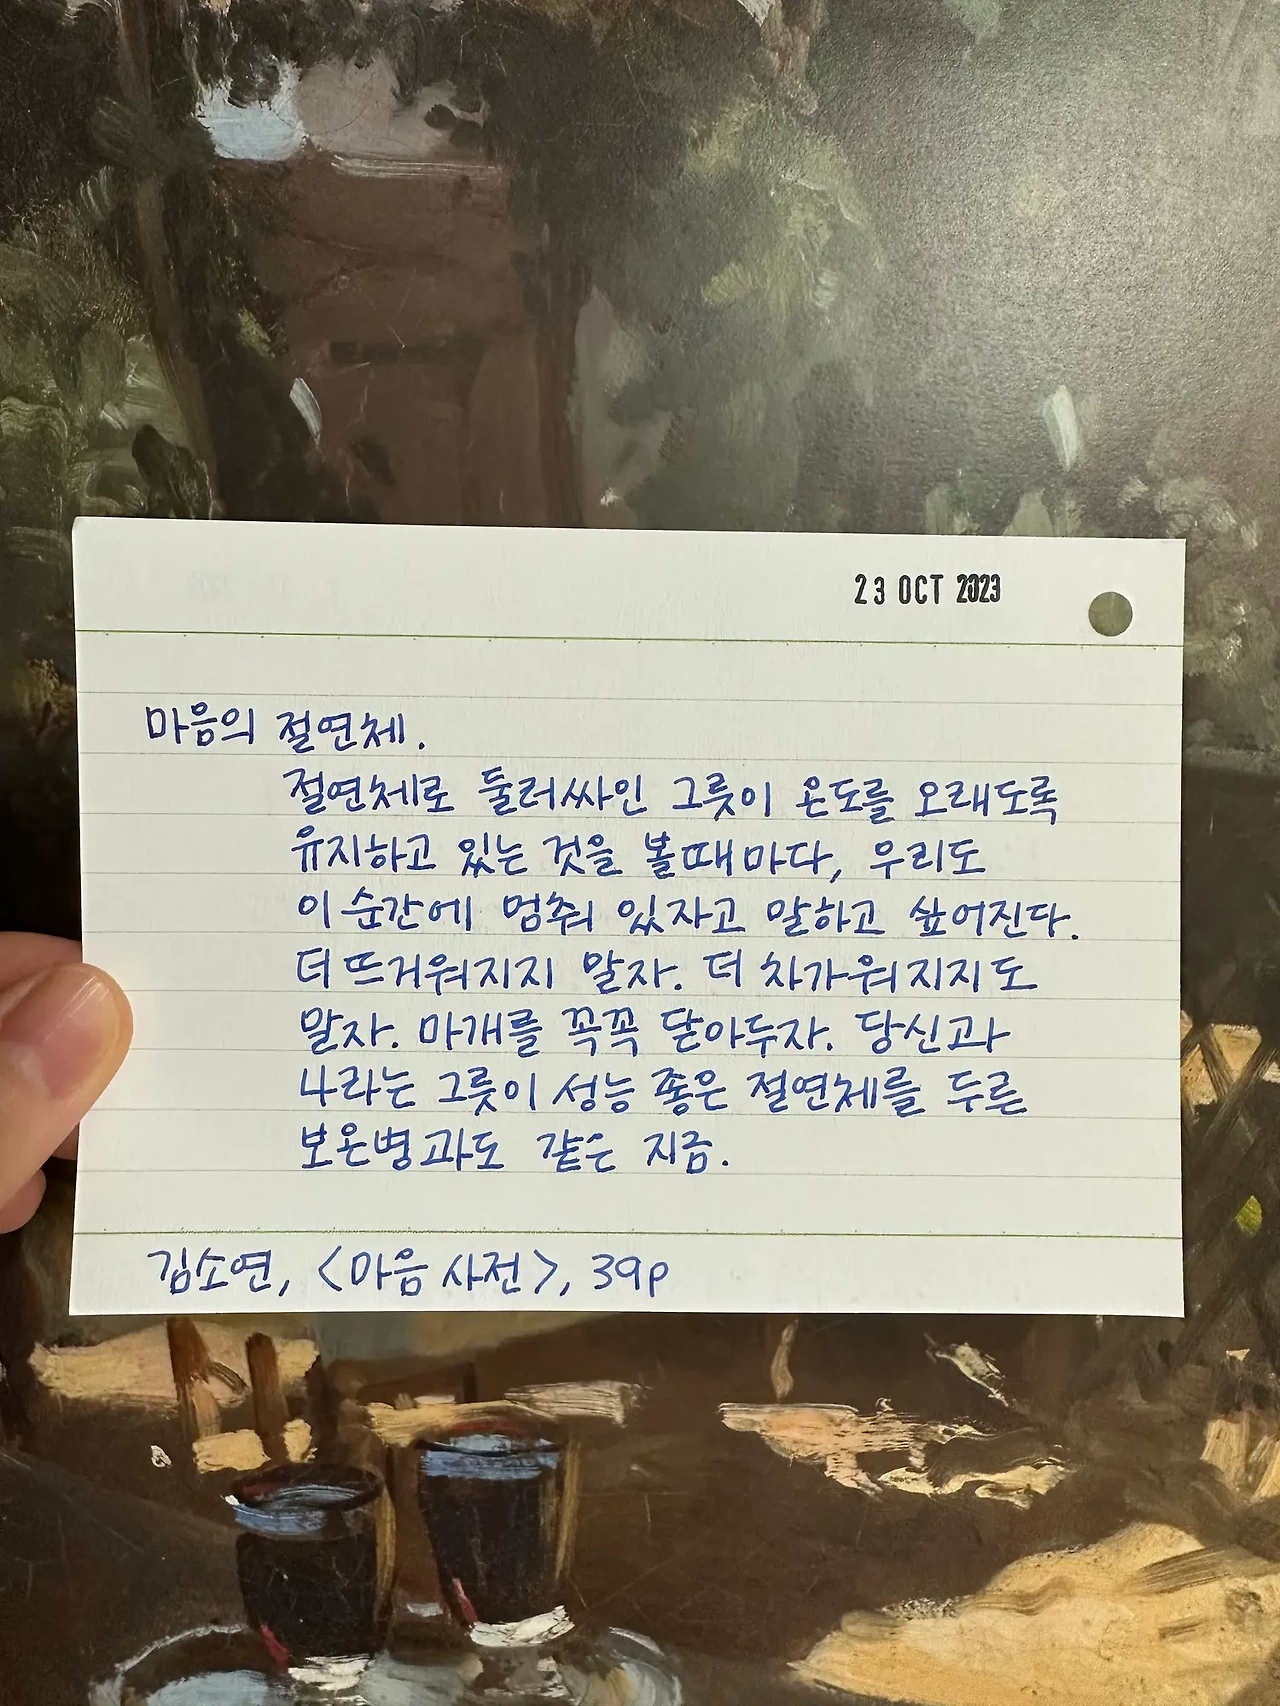 23 OCT 2023
마음의 절연체.
절연체로 둘러싸인 그릇이 온도를 오래도록
유지하고 있는 것을 볼때마다, 우리도
이 순간에 멈춰 있자고 말하고 싶어진다.
더 뜨거워지지 말자. 더 차가워지지도
말자. 마개를 꼭꼭 닫아두자. 당신과
나라는 그릇이 성능 좋은 절연체를 두른
보온병과도 같은 지금.
김소연, <마음 사전>, 39p